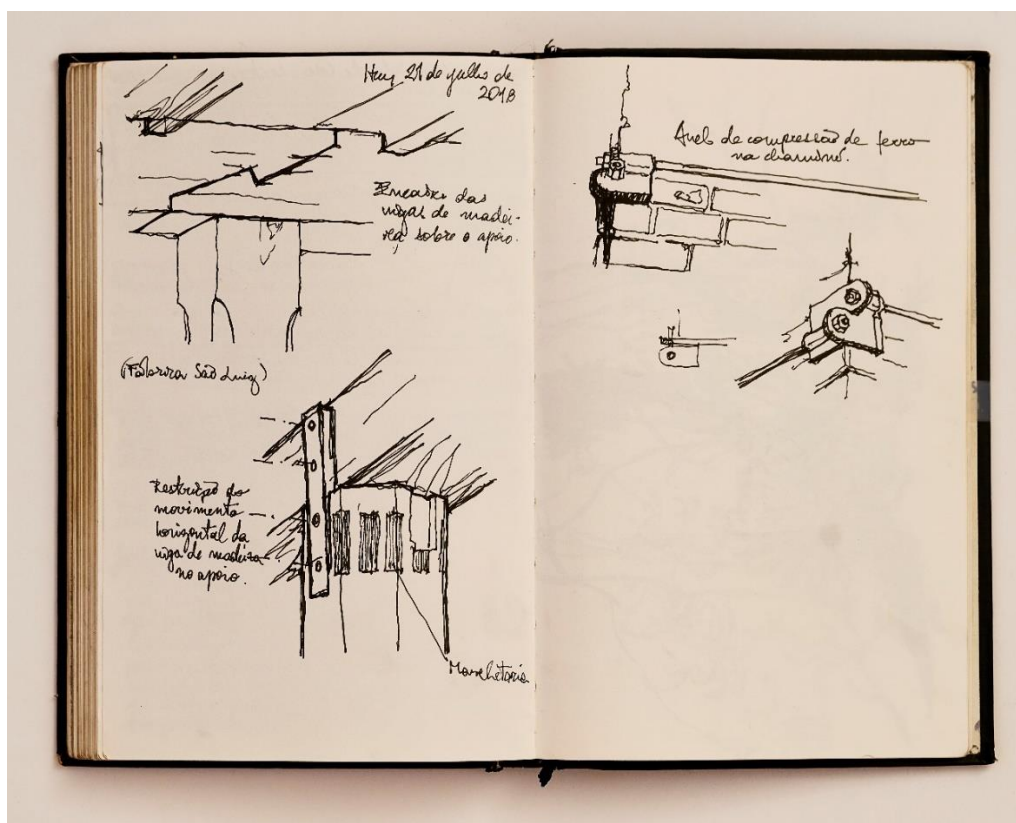 Itu, 21 de julho de
2018
Encaixe das
vigas de madei-
ra sobre o apoio.
(Fábrica São Luiz)
Restrição do
movimento
horizontal da
viga de madeira
no apoio.
Marchetaria
Anel de compressão de ferro
na chaminé.